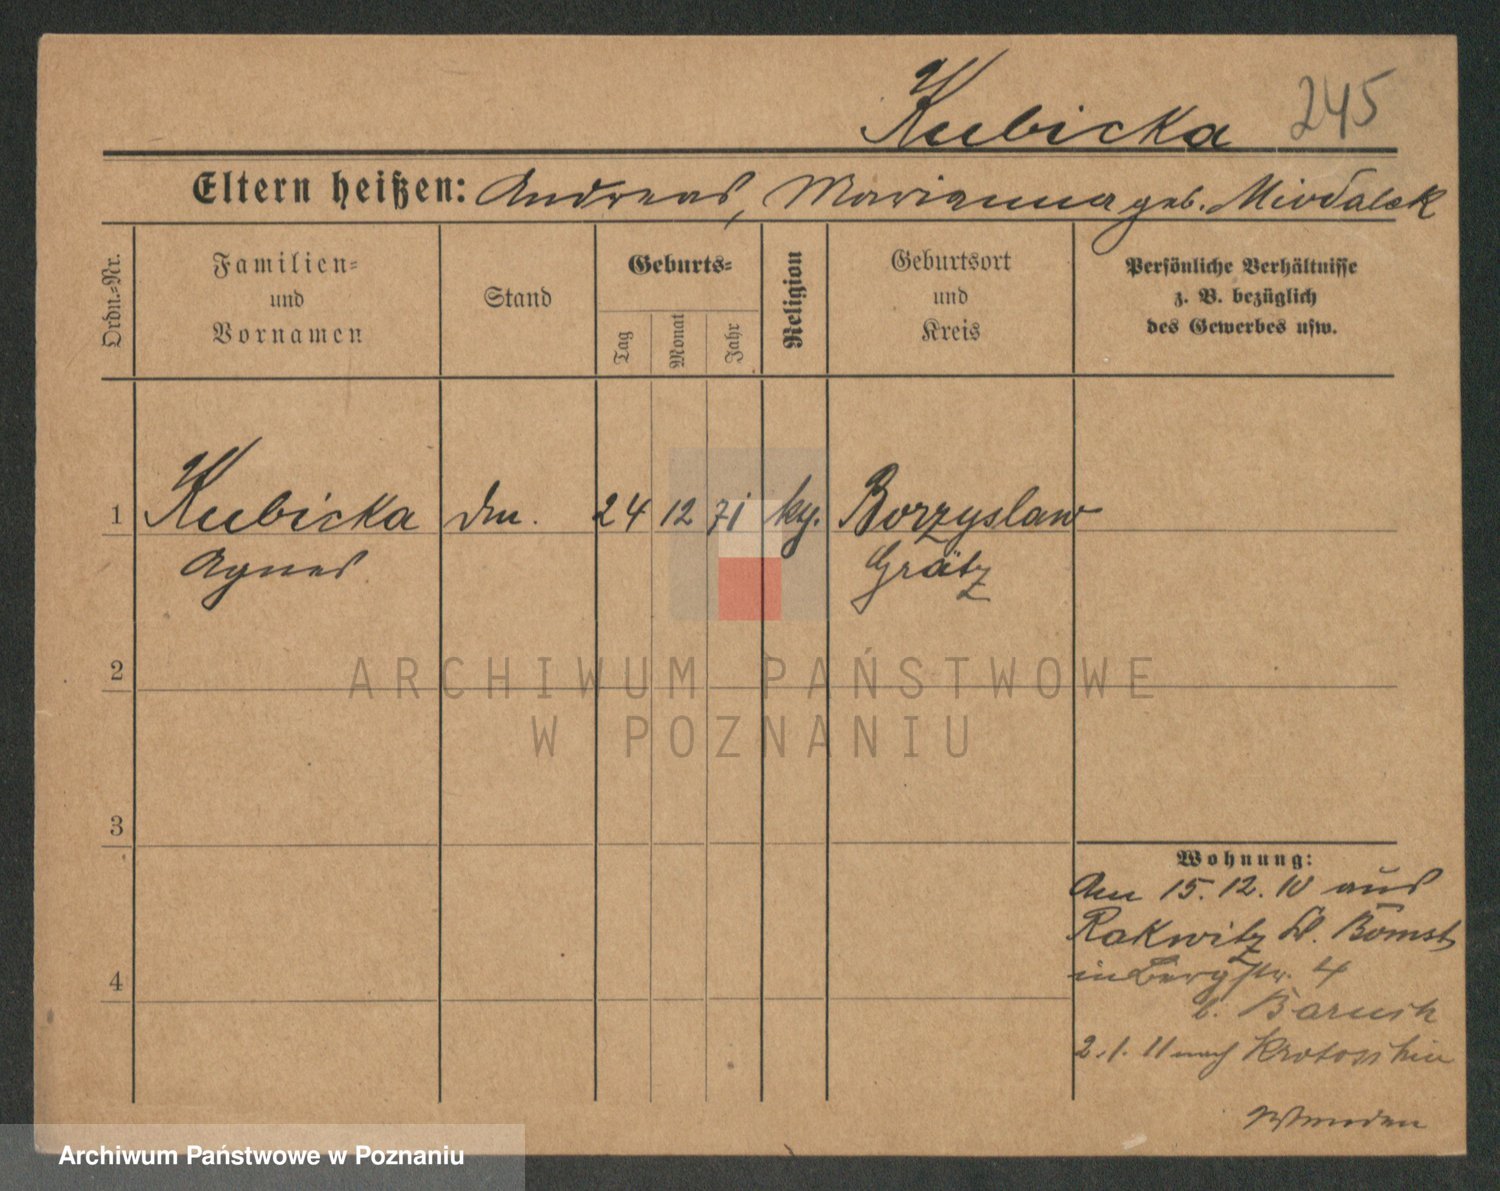 Kubicka 245
Eltern heißen: Andreas, Marianna geb. Miodalsk
Ordn.=Nr.
Familien=
und
Vornamen
Stand
Geburts=
Tag
Monat
Jahr
Religion
Geburtsort
und
Kreis
Persönliche Verhältnisse
z. B. bezüglich
des Gewerbes usw.
1 Kubicka 24 12 71 Borzyslaw
Agnes Grätz
2
3
4
Wohnung:
Am 15.12.10 aus
Rakwitz Bomst
in Bergstr. 4
b.
2.1.11 nach Krotoschin
Wenden
ARCHIWUM PAŃSTWOWE
W POZNANIU
Archiwum Państwowe w Poznaniu